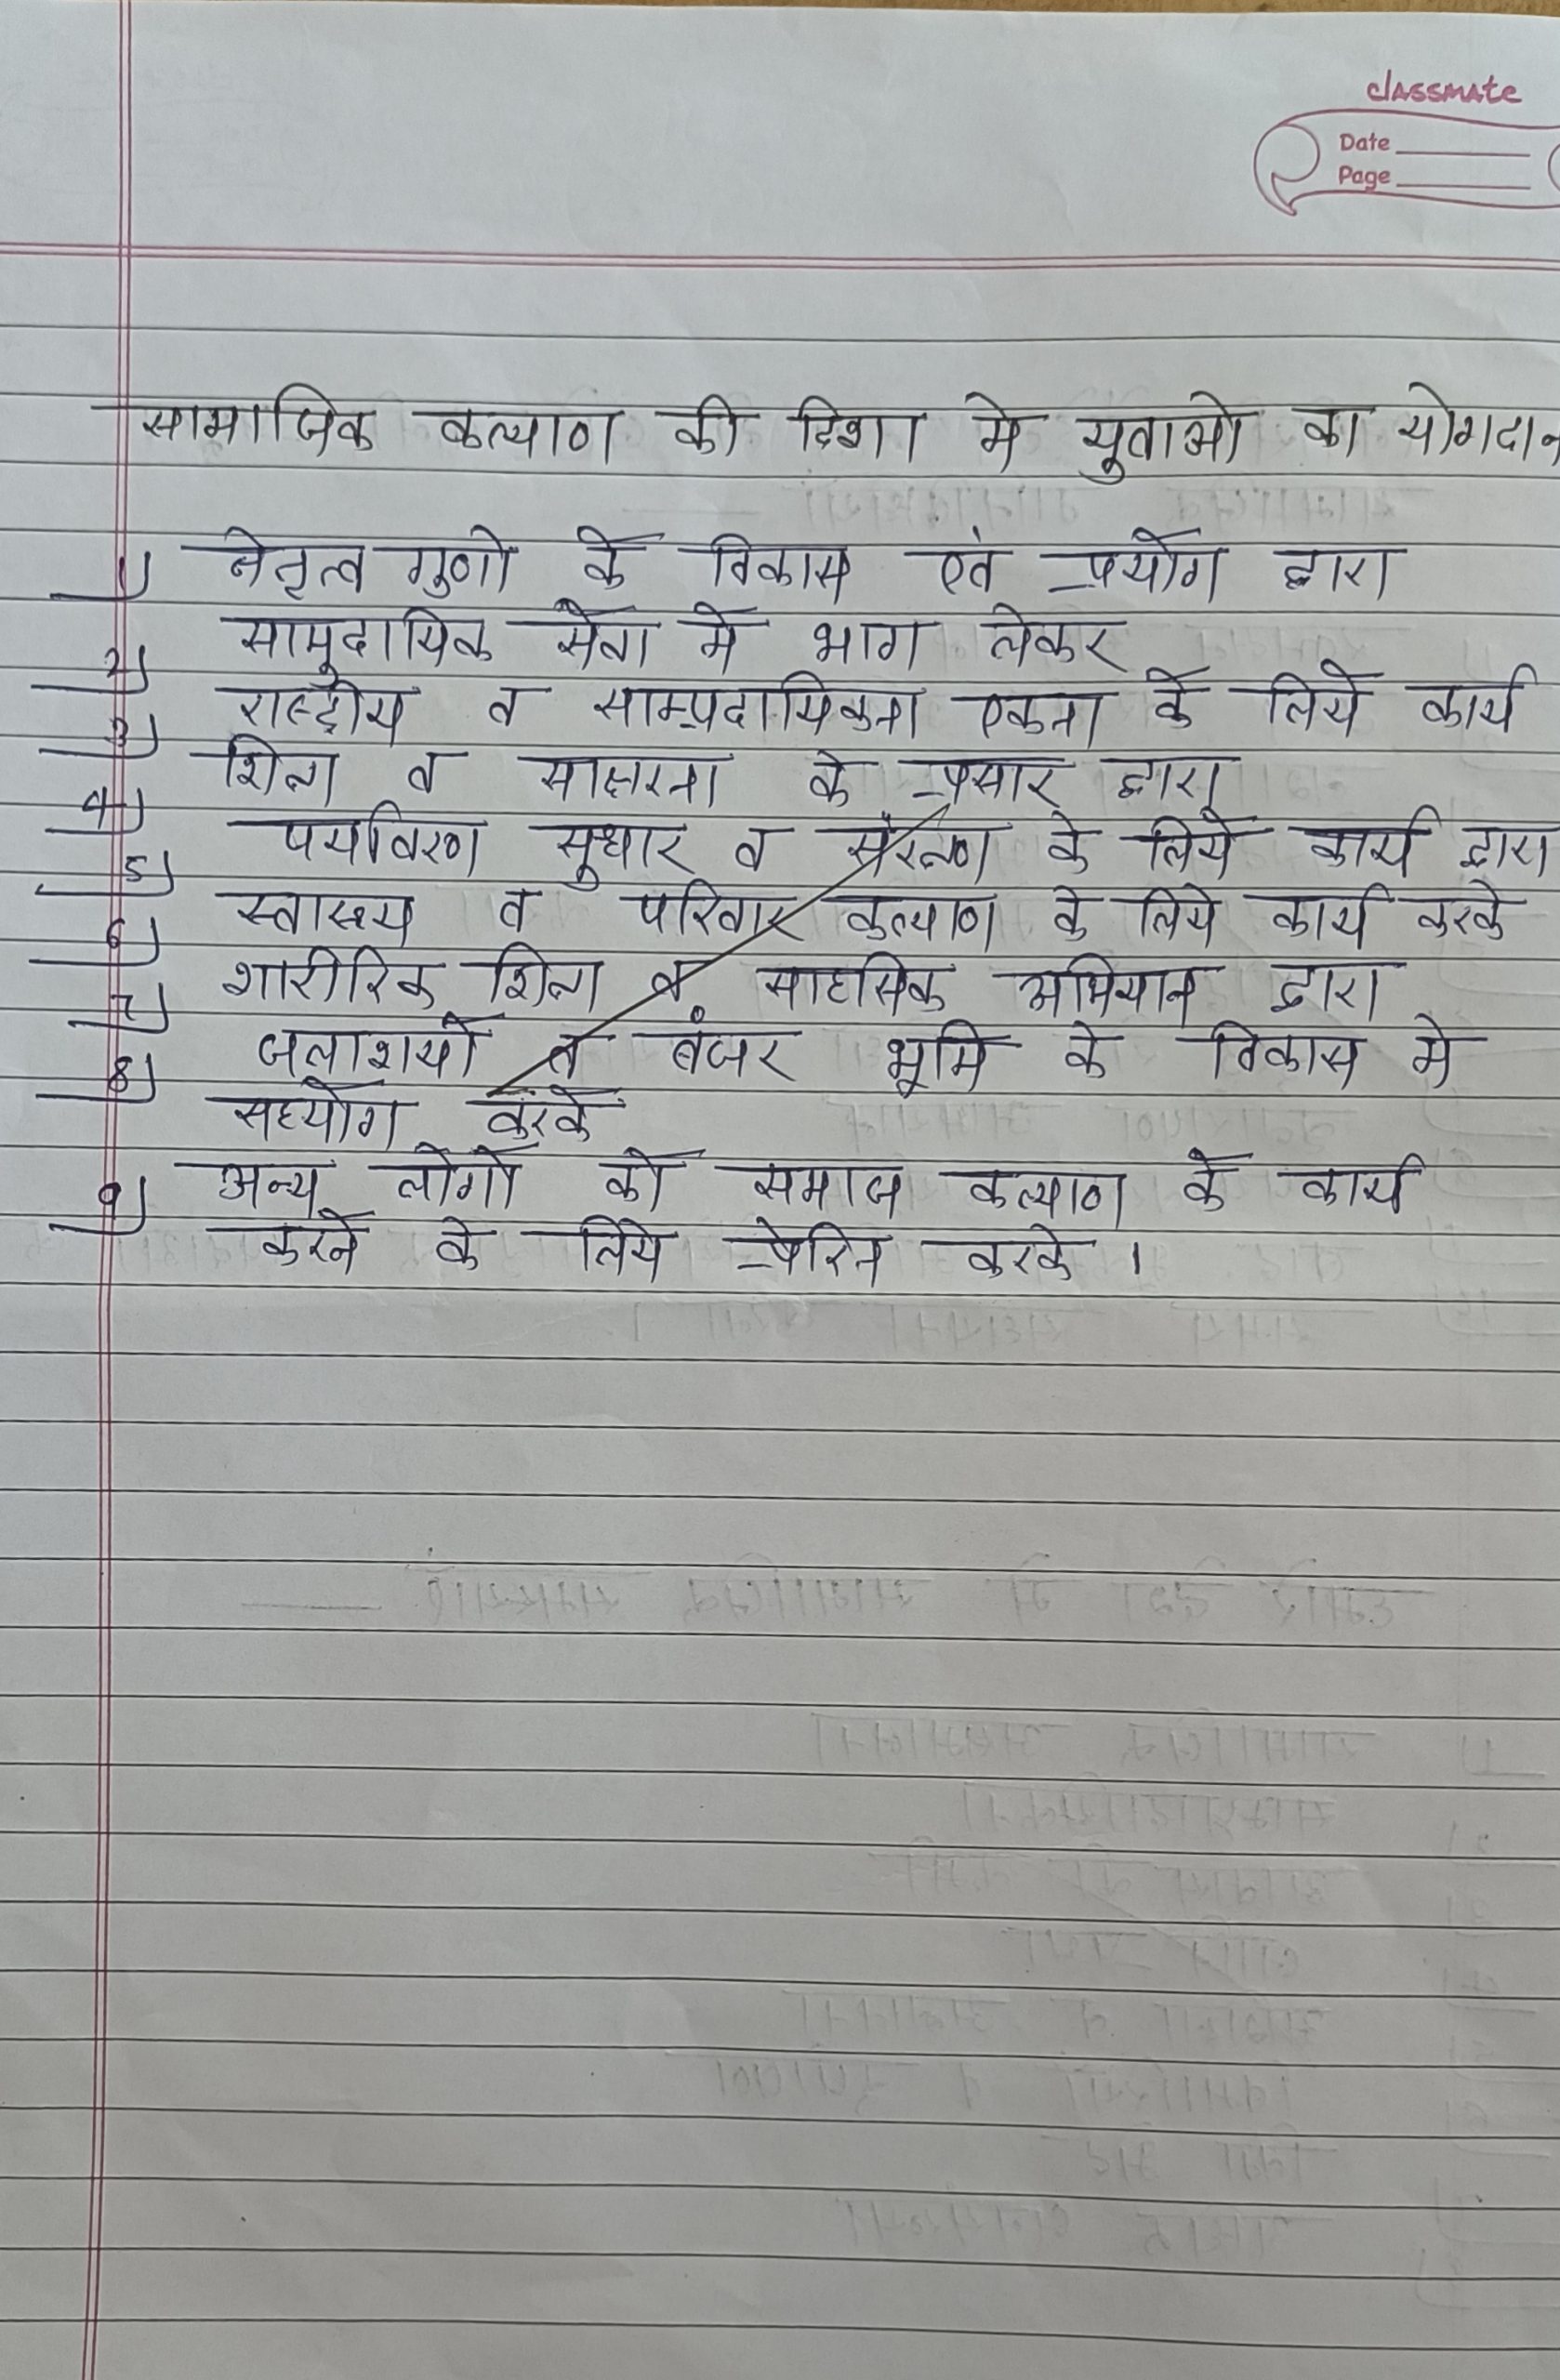 classmate
Date
Page
सामाजिक कल्याण की दिशा मे युवाओ का योगदान
1) नेतृत्व गुणो के विकास एवं प्रयोग द्वारा
2) सामुदायिक सेवा मे भाग लेकर
3) राष्ट्रीय व साम्प्रदायिकता एकता के लिये कार्य
4) शिक्षा व साक्षरता के प्रसार द्वारा
5) पर्यावरण सुधार व संरक्षण के लिये कार्य द्वारा
6) स्वास्थ्य व परिवार कल्याण के लिये कार्य करके
7) शारीरिक शिक्षा व साहसिक अभियान द्वारा
8) जलाशयों व बंजर भूमि के विकास मे
सहयोग करके
9) अन्य लोगों को समाज कल्याण के कार्य
करने के लिये प्रेरित करके ।